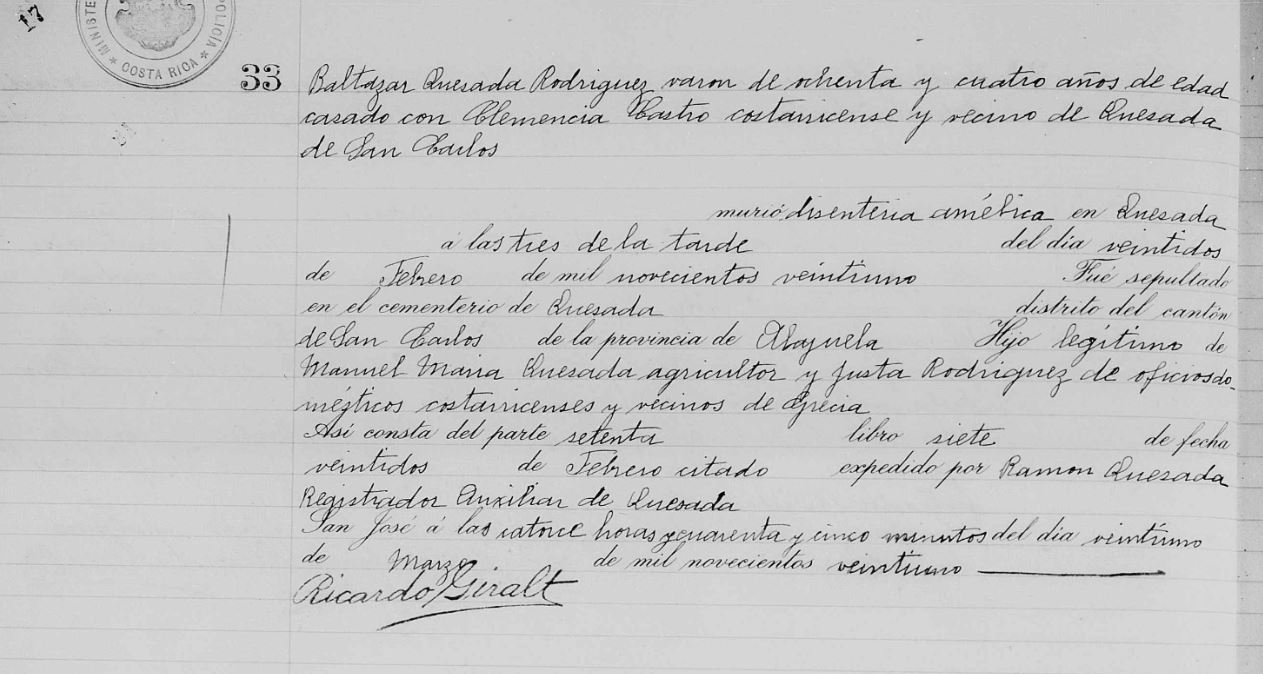 17
MINISTE
POLICIA
* COSTA RICA *
33
Baltazar Quesada Rodriguez varon de ochenta y cuatro años de edad
casado con Clemencia Castro costarricense y vecino de Quesada
de San Carlos
murió disenteria amébica en Quesada
á las tres de la tarde del día veintidos
de Febrero de mil novecientos veintiuno Fué sepultado
en el cementerio de Quesada distrito del cantón
de San Carlos de la provincia de Alajuela Hijo legítimo de
Manuel Maria Quesada agricultor y Justa Rodriguez de oficios do-
mésticos costarricenses y vecinos de Grecia
Así consta del parte setenta libro siete de fecha
veintidos de Febrero citado expedido por Ramon Quesada
Registrador Auxiliar de Quesada
San José á las catorce horas y cuarenta y cinco minutos del día veintiuno
de Marzo de mil novecientos veintiuno
Ricardo Giralt